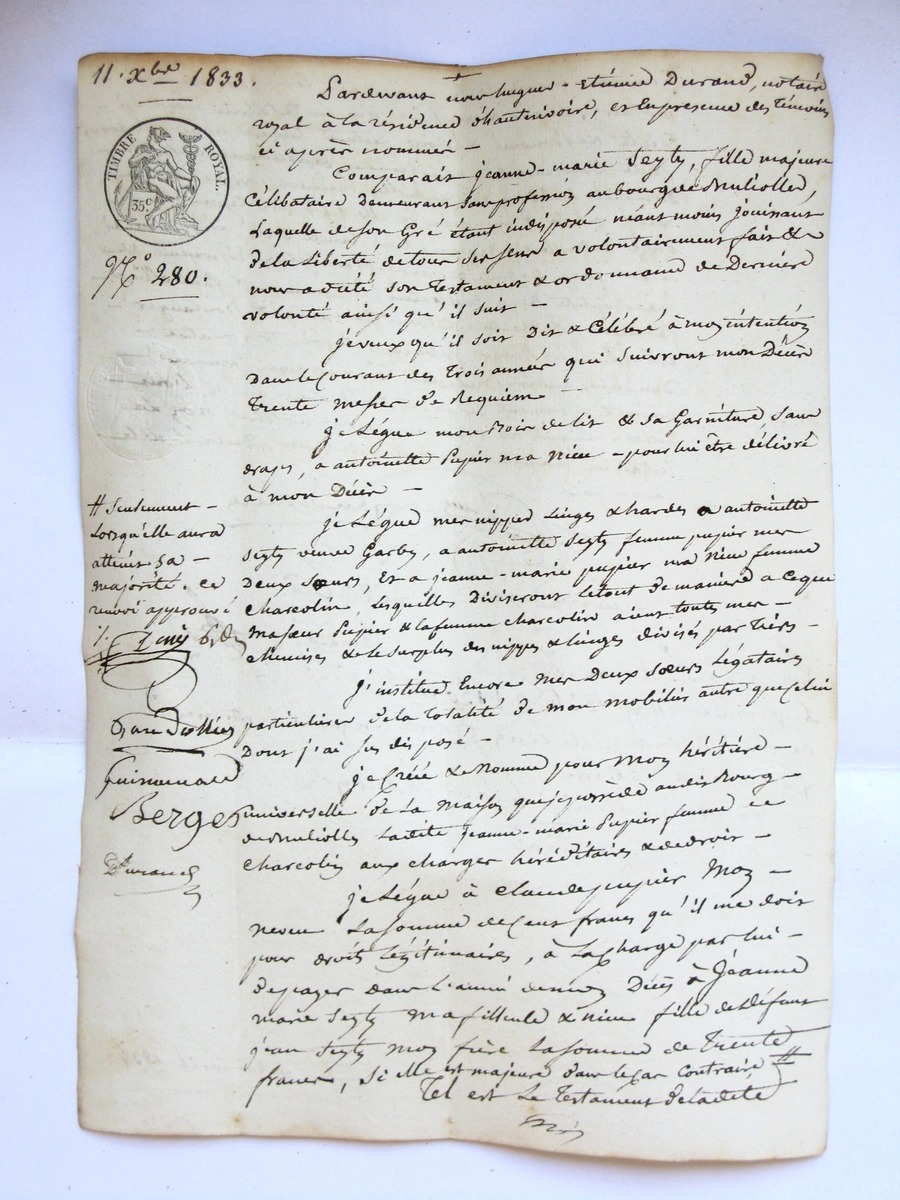 11. Xbre 1833.
TIMBRE ROYAL.
35c
No 280.
Pardevant nous hugues-Etienne Durand, notaire
royal à la résidence d'hauterivoire, et En présence des Témoins
ci après nommés —
Comparait jeanne-marie Seyty, fille majeure
Célibataire demeurant sans profession au bourg de
Laquelle de son Gré étant indisposé néant moins jouissant
de la Liberté de tous ses sens a volontairement fait &
nous a dicté son Testament & ordonnance de Dernière
volonté ainsi qu'il suit —
je veux qu'il soit Dit & Célébré à mon intention
Dans le Courant des Trois années qui suivront mon Décès
Trente messes de Requiem —
je Légue mon Bois de lit & sa Garniture, sans
draps, a antoinette Pupier ma niece — pour lui être délivré
à mon Décès —
je Légue mes nippes Linges & hardes a antoinette
Seyty veuve Garby, a antoinette Seyty femme pupier mes
deux sœurs, Et a jeanne-marie pupier ma niece femme
Charcolin, Lesquelles Diviseront le tout de manière a ce que
ma sœur Pupier & la femme Charcolin aient toutes mes —
chemises & le Surplus des nippes & Linges divisés par Tiers —
j'institue Encore mes Deux sœurs Légataires
particulières de la Totalité de mon mobilier autre que Celui
Dont j'ai sus disposé —
je Créée & Nomme pour mon héritière —
universelle de La maison que je possède audit Bourg —
Ladite jeanne-marie Pupier femme
Charcolin aux charges héréditaires & de droit —
je Légue à Claude pupier mon —
neveu La somme de Cent francs qu'il me doit
pour droits Légitimaires, à La Charge par lui —
de payer dans L'année de mon Décès à Jeanne
marie Seyty ma filleule & niece fille de Défunt
jean Seyty mon frère La somme de Trente
francs, Si Elle est majeure dans le cas Contraire #
Tel est Le Testament de ladite
# Seulement —
Lorsqu'elle aura
atteint sa —
majorité. ce
renvoi approuvé
Guimenaud
Berger
Durand